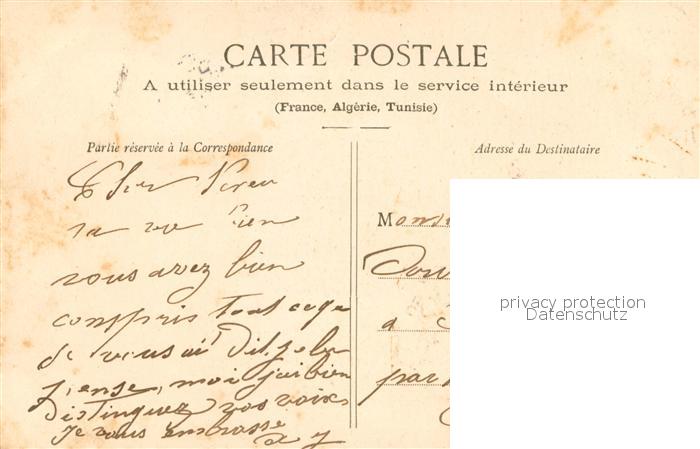 CARTE POSTALE
A utiliser seulement dans le service intérieur
(France, Algérie, Tunisie)
Partie réservée à la Correspondance
Adresse du Destinataire
Cher
sa va bien
vous avez bien
compris tout ce que
je vous ai dit je le
pense, moi j'ai bien
distinguez vos voix
Je vous embrasse
Mons
a
par
privacy protection
Datenschutz